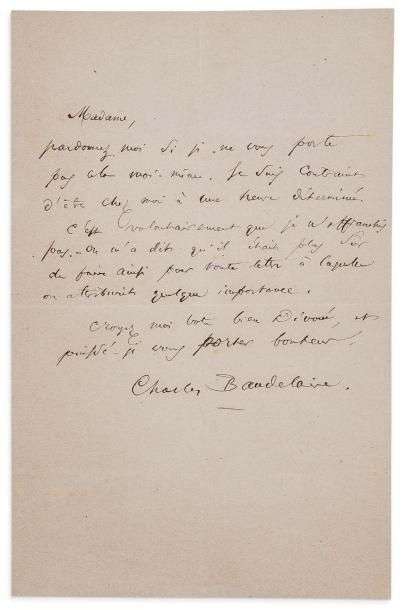 Madame,
pardonnez moi si je ne vous porte
pas cela moi-même. Je suis contraint
d'être chez moi à une heure déterminée.
C'est volontairement que je n'affranchis
pas. On m'a dit qu'il était plus sûr
de faire ainsi pour toute lettre à laquelle
on attribuait quelque importance.
Croyez moi votre bien dévoué, et
puissé-je vous porter bonheur.
Charles Baudelaire.